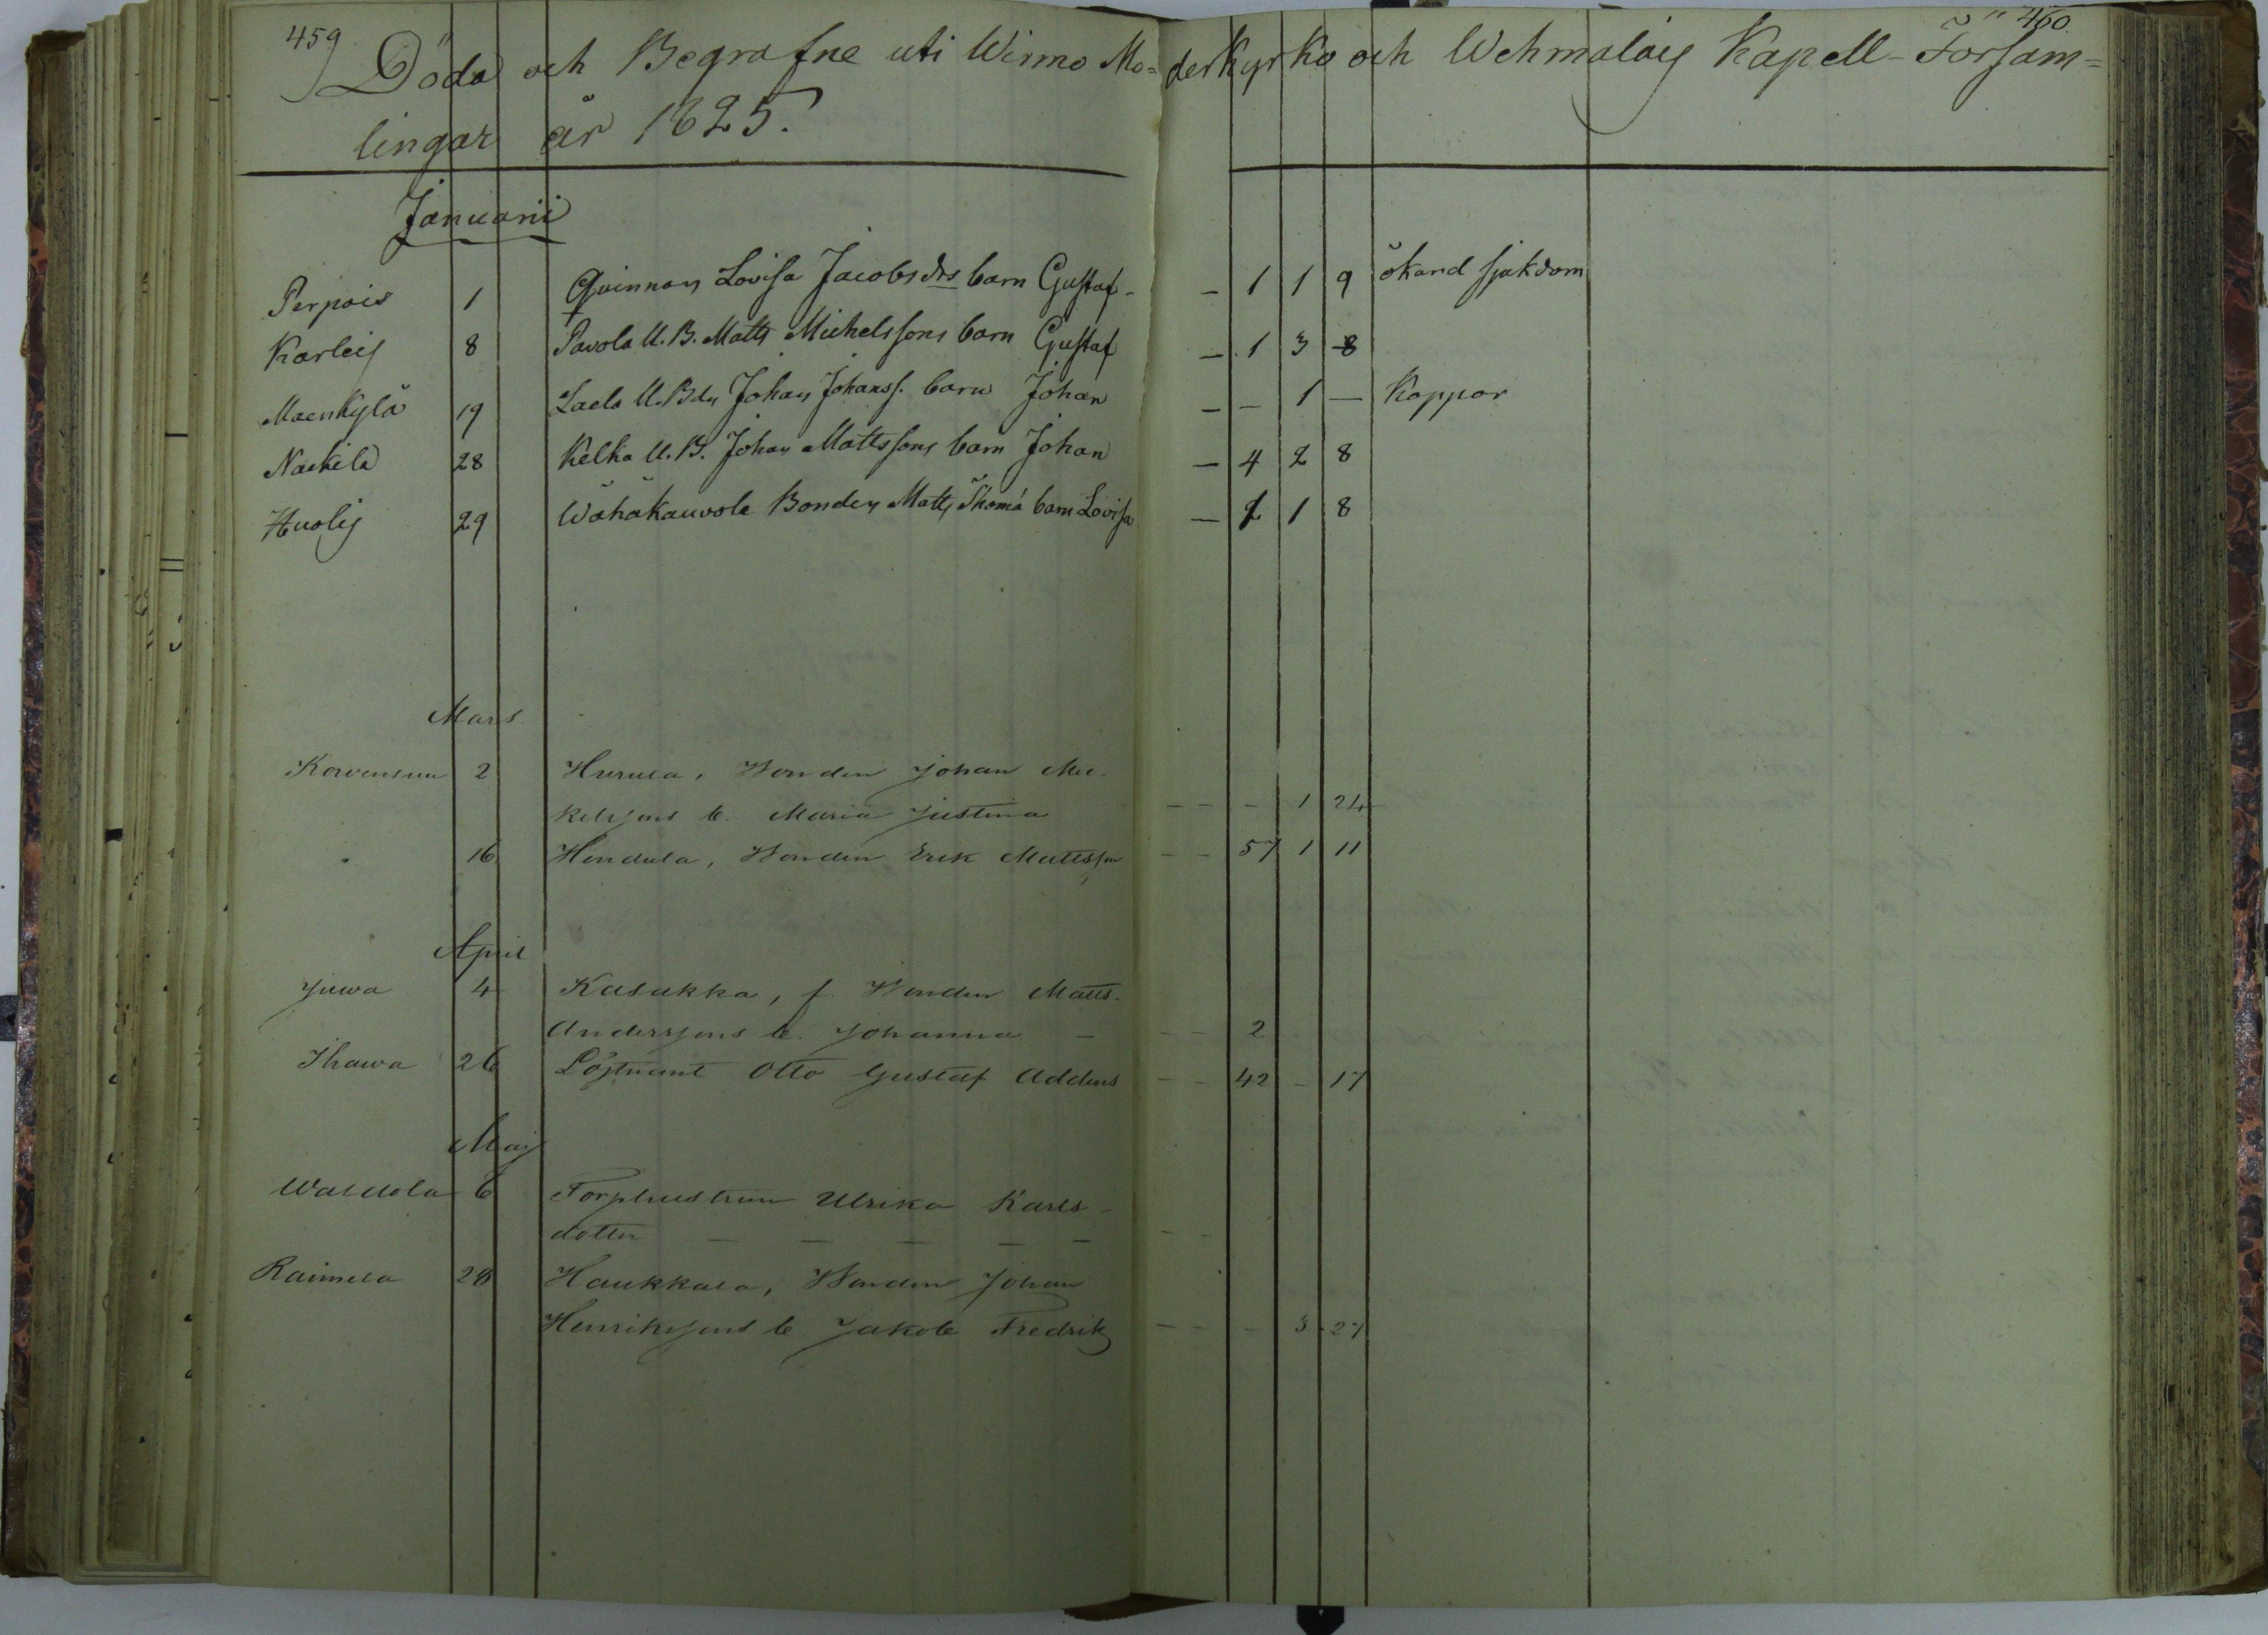 459
460
Döda och Begrafne uti Wirmo Moderkyrko och Wehmalais Kapell-Försam=
lingar år 1825.
Januarii
Perpois 1 Qvinnan Lovisa Jacobsdrs barn Gustaf - - 1 1 9 okänd sjukdom
Karleis 8 Pavola U.B. Matts Michelssons barn Gustaf - 1 3 8
Maenkylä 19 Laela U.Bdn Johan Johanss. barn Johan - - 1 - Koppor
Naukila 28 Kelka U.B. Johan Mattssons barn Johan - 4 2 8
Huolis 29 Wähäkauvola Bonden Matts Thomæ barn Lovisa - 2 1 8
Mars
Korvensuu 2 Hurula, Bonden Johan Mic-
kelssons b. Maria Justina - - - 1 24
" 16 Hendula, Bonden Erik Mattsson - - 57 1 11
April
Juva 4 Kasakka, f. Bonden Matts
Anderssons b. Johanna - - - 2
Ihawa 26 Löjtnant Otto Gustaf Addens - - 42 - 17
Maj
6 Torphustrun Ulrika Karls-
dotter - - - - - - -
Raimela 28 Haukkala, Bonden Johan
Henrikssons b Jakob Fredrik - - - 3 27